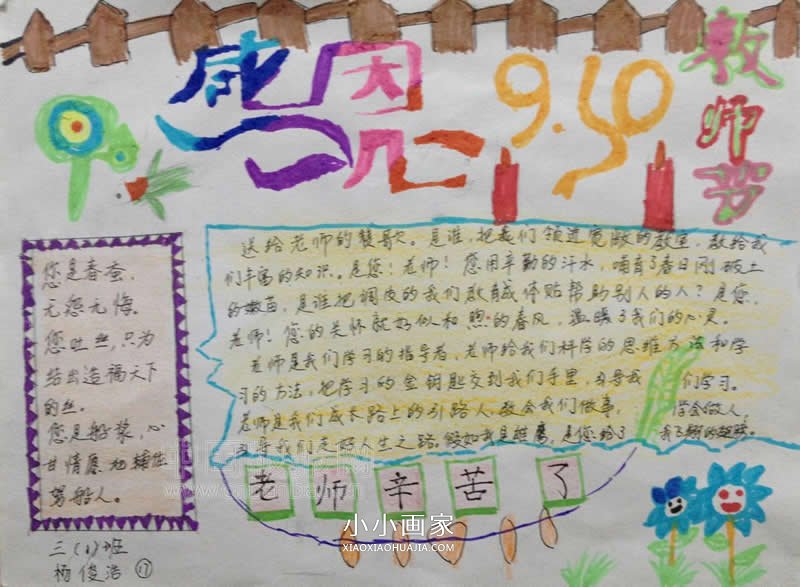 感恩
9.10
教师节
您是春蚕，
无怨无悔。
您吐丝，只为
结出造福天下
的丝。
您是船桨，心
甘情愿地牺牲
驾船人。
三(1)班
杨俊浩 17
送给老师的赞歌。是谁，把我们领进宽敞的教室，教给我
们丰富的知识。是您！老师！您用辛勤的汗水，哺育了春日刚破土
的嫩苗，是谁把调皮的我们教育成体贴帮助别人的人？是您，
老师！您的关怀就好似和煦的春风，温暖了我们的心灵。
老师是我们学习的指导者，老师给我们科学的思维方法和学
习的方法，把学习的金钥匙交到我们手里，引导我们学习。
老师是我们成长路上的引路人，教会我们做事，学会做人，
引导我们走好人生之路。假如我是雄鹰，是您给了我飞翔的翅膀。
老师辛苦了
小小画家
XIAOXIAOHUAJIA.COM